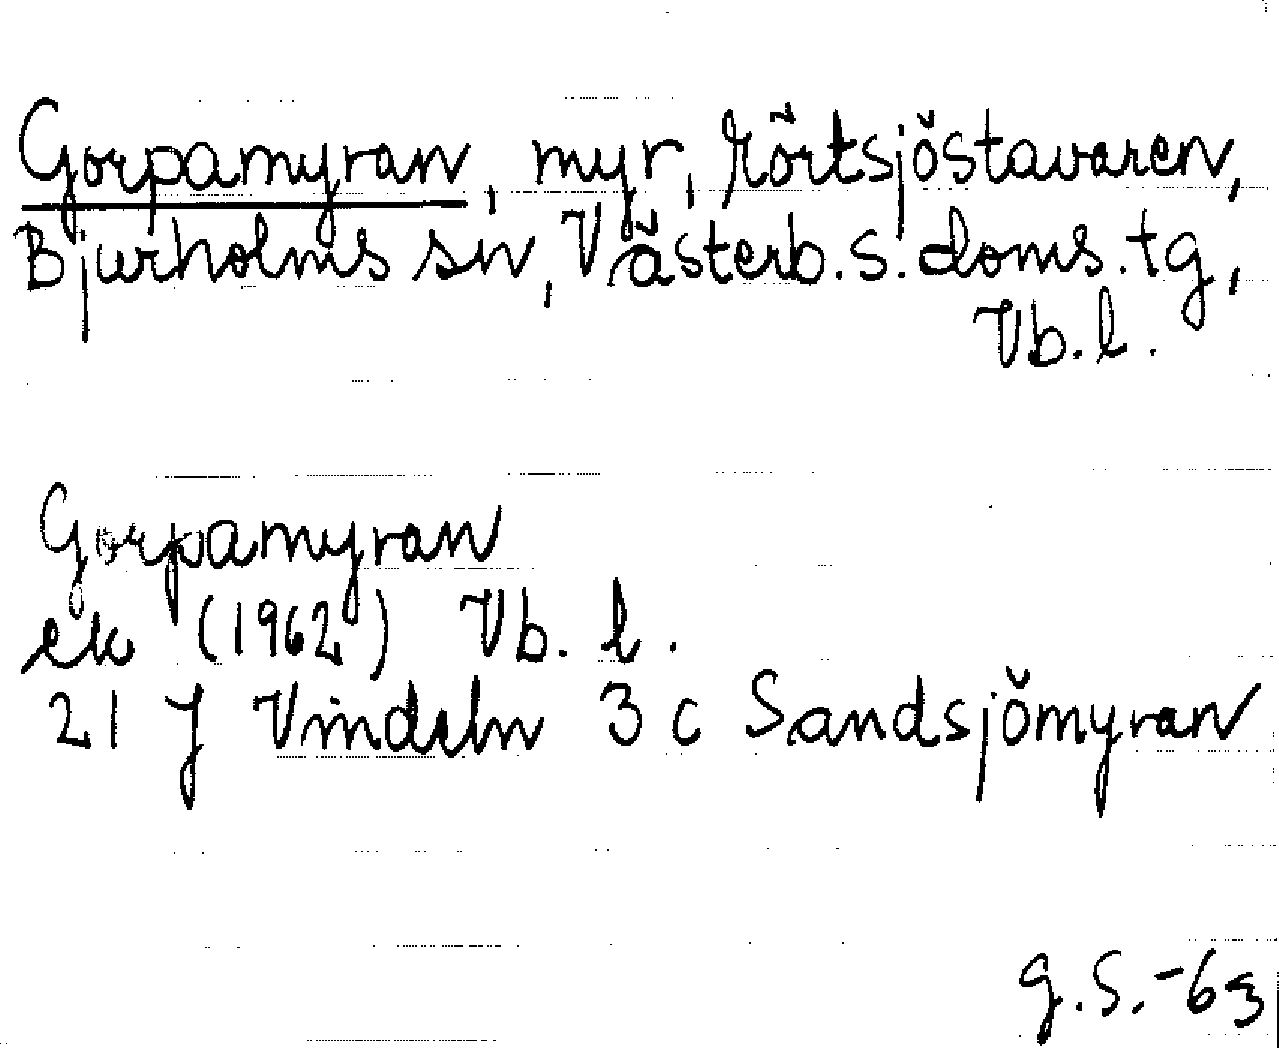 Gorpamyran, myr, Rörtsjöstavaren,
Bjurholms sn, Västerb. s. doms. tg,
Vb. l.
Gorpamyran
ek (1962) Vb. l.
21 J Vindeln 3 c Sandsjömyran
g. S. -63